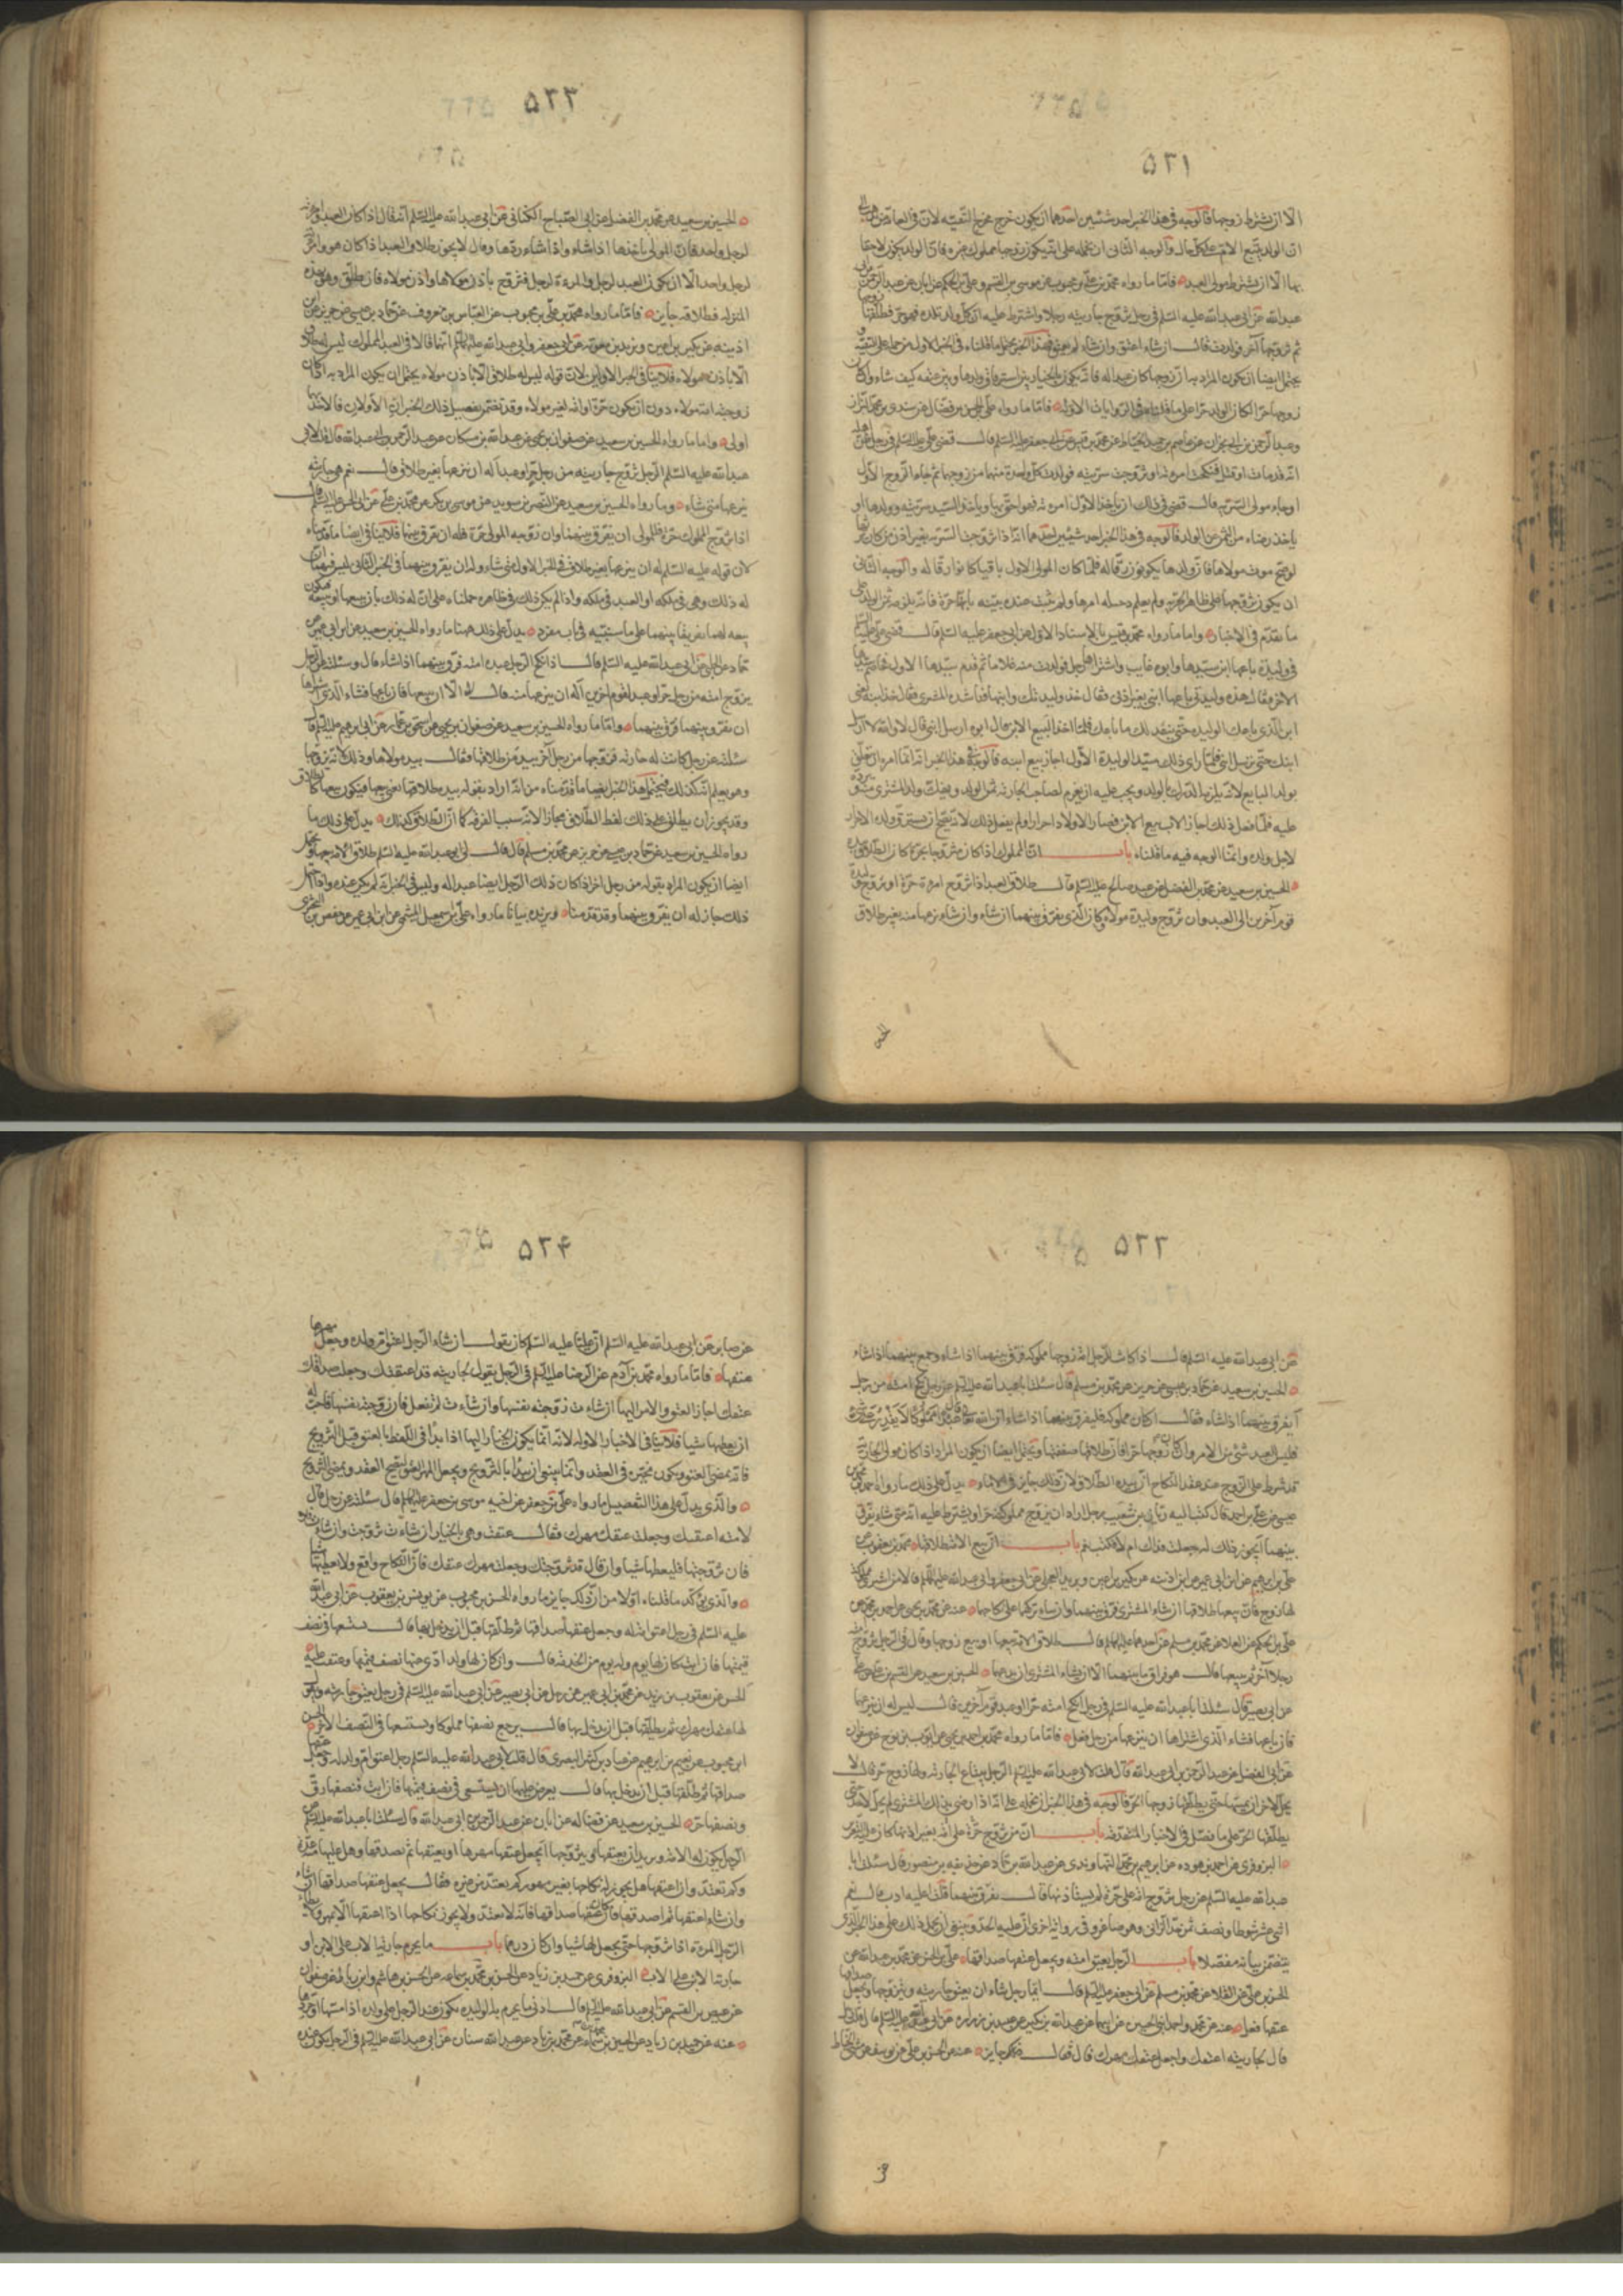 ۵۲۱
الا ان يشترط زوجها فالوجه فى هذا الخبر احد شيئين احدهما ان يكون خرج مخرج التقيه لان فى العامه من يذهب الى
ان الولد يتبع الام على كل حال والوجه الثانى ان نحمله على انه يكون زوجها مملوك غيره فان الولد يكون لاحقا
بها الا ان يشترط مولى العبد فاما ما رواه محمد بن على بن محبوب عن موسى بن القسم وعلى بن الحكم عن ابان عن عبد الرحمن بن ابى
عبدالله عن ابى عبدالله عليه السلم فى رجل زوج جاريته رجلا واشترط عليه ان كل ولد تلده فهو حر فطلقها زوجها
ثم تزوجها آخر فولدت قال ان شاء اعتق وان شاء لم يعتق فهذا الخبر يحتمل ما قلناه فى الخبر الاول من حمله على التقيه و
يحتمل ايضا ان يكون المراد به اذا زوجها كان عبدا له فانه يكون بالخيار بين استرقاق ولدها وبين عتقه كيف شاء وان كان
زوجها حرا كان الولد حرا على ما قلناه فى الروايات الاوله فاما ما رواه على بن الحسن بن فضال عن سندى بن محمد البزاز
وعبد الرحمن بن ابى نجران عن عاصم بن حميد الحناط عن محمد بن قيس عن ابى جعفر عليه السلم قال قضى على عليه السلم فى رجل ظن اهله
انه قد مات او قتل فنكحت امرءته او تزوجت سريته فولدت كل واحدة منهما من زوجها ثم جاء الزوج الاول
او جاء مولى السريه قال قضى فى ذلك ان ياخذ الاول امرءته فهو احق بها وياخذ السيد سريته وولدها او
ياخذ رضاه من الثمن ثمن الولد فالوجه فى هذا الخبر احد شيئين احدهما انه اذا تزوجت السريه بغير اذن من كان ورثها
لو صح موت مولاها فان ولدها يكونون رقا له فلما كان المولى الاول باقيا كانوا رقا له والوجه الثانى
ان يكون تزوجها على ظاهر الحريه ولم يعلم دخيله امرها ولم يثبت عنده بينه بانها حرة فانه يلزمه ثمن الولد على
ما تقدم فى الاخبار واما ما رواه محمد بن قيس بالاسناد الاول عن ابى جعفر عليه السلم قال قضى على عليه السلم
فى وليدة باعها ابن سيدها وابوه غايب واشتراها رجل فولدت منه غلاما ثم قدم سيدها الاول فخاصم سيدها
الاخر فقال هذه وليدتى باعها ابنى بغير اذنى فقال خذ وليدتك وابنها فناشده المشترى فقال خذ ابنه يعنى
ابن الذى باعك الوليده حتى ينفذ لك ما باعك فلما اخذ البيع الابن قال ابوه ارسل ابنى قال لا والله لا ارسل
ابنك حتى ترسل ابنى فلما راى ذلك سيد الوليدة الاول اجاز بيع ابنه فالوجه فى هذا الخبر انه انما امره ان يتعلق
بولد البايع لانه يلزمه الدرك بالولد ويجب عليه ان يغرم لصاحب الجاريه ثمن الولد ويفك ولد المشترى
عليه فلما فعل ذلك اجاز الاب بيع الابن فصار الاولاد احرارا ولم يفعل ذلك لانه يصح ان يسترق ولد الاحرار
لاجل ولده وانما الوجه فيه ما قلناه باب ان المملوك اذا كان متزوجا بحرة كان الطلاق بيده
الحسين بن سعيد عن محمد بن الفضيل عن عبد صالح عليه السلم قال طلاق العبد اذا تزوج امرءة حرة او تزوج وليدة
قوم آخرين الى العبد وان تزوج وليدة مولاه كان الذى يفرق بينهما ان شاء وان شاء نزعها منه بغير طلاق
الحسين
۵۲۲
الحسين بن سعيد عن محمد بن الفضل عن ابى الصباح الكنانى عن ابى عبدالله عليه السلم انه قال اذا كان العبد وامرءته
لرجل واحد فان المولى ياخذها اذا شاء واذا شاء ردها وقال لا يجوز طلاق العبد اذا كان هو وامرءته
لرجل واحد الا ان يكون العبد لرجل والمرءة لرجل فتزوج باذن مولاها واذن مولاه فان طلق وهو بهذه
المنزله فطلاقه جايز فاما ما رواه محمد بن على بن محبوب عن العباس بن معروف عن حماد بن عيسى عن حريز عن ابن
اذينه عن بكير بن اعين وبريد بن معويه عن ابى جعفر وابى عبدالله عليهما السلم انهما قالا فى العبد المملوك ليس له طلاق
الا باذن مولاه فلا ينافى الخبر الاولين لان قوله ليس له طلاق الا باذن مولاه يحتمل ان يكون المراد به اذا كان
زوجته امه مولاه دون ان يكون حرة او امه لغير مولاه وقد تضمن تفصيل ذلك الخبران الاولان فالاخذ بها
اولى واما ما رواه الحسين بن سعيد عن صفوان بن يحيى عن عبدالله بن مسكان عن عبد الرحمن بن ابى عبدالله قال قلت لابى
عبدالله عليه السلم الرجل تزوج جاريته من رجل حر او عبد اله ان ينزعها بغير طلاق قال نعم هى جاريته
ينزعها متى شاء وما رواه الحسين بن سعيد عن النضر بن سويد عن موسى بن بكر عن محمد بن على عن ابى الحسن عليه السلم قال
اذا تزوج المملوك حرة فللمولى ان يفرق بينهما وان زوجه المولى حرة فله ان يفرق بينهما فلا ينافى ايضا ما قدمناه
لان قوله عليه السلم له ان ينزعها بغير طلاق فى الخبر الاول متى شاء وله ان يفرق بينهما فى الخبر الثانى ليس فيهما ان
له ذلك وهى فى ملكه او العبد فى ملكه واذا لم يكن ذلك فى ظاهره حملناه على ان له ذلك بان يبيعها او يبيعه فيكون
بيعه لهما تفريقا بينهما على ما سنبينه فى باب مفرد يدل على ذلك ههنا ما رواه الحسين بن سعيد عن ابن ابى عمير عن
حماد عن الحلبى عن ابى عبدالله عليه السلم قال اذا انكح الرجل عبده امته فرق بينهما اذا شاء قال وسئلته عن الرجل
يزوج امته من رجل حر او عبد لقوم آخرين اله ان ينزعها منه قال لا الا ان يبيعها فان باعها فشاء الذى اشتراها
ان يفرق بينهما فرق بينهما واما ما رواه الحسين بن سعيد عن صفوان بن يحيى عن اسحق بن عمار عن ابى ابرهيم عليه السلم قال
سئلته عن رجل كانت له جاريه فزوجها من رجل آخر بيد من طلاقها فقال بيد مولاها وذلك لانه تزوجها
وهو يعلم انها كذلك فيحتمل هذا الخبر ايضا ما قدمناه من انه اراد بقوله بيده طلاقها يعنى بيعها فيكون بيعها كالطلاق
وقد يجوز ان يطلق على ذلك لفظ الطلاق مجازا لانه سبب الفرقه كما ان الطلاق كذلك يدل على ذلك ما
رواه الحسين بن سعيد عن حماد بن عيسى عن حريز عن محمد بن مسلم قال قال لى ابو عبدالله عليه السلم طلاق الامه بيعها ويحتمل
ايضا ان يكون المراد بقوله من رجل اخر اذا كان ذلك الرجل ايضا عبدا له وليس فى الخبر انه لم يكن عنده واذا احتمل
ذلك جاز له ان يفرق بينهما وقد قدمناه ويزيده بيانا ما رواه على بن اسمعيل الميثمى عن ابن ابى عمير عن حفص بن البخترى
۵۲۳
عن ابى عبدالله عليه السلم قال اذا كانت للرجل امه زوجها مملوكه فرق بينهما اذا شاء وجمع بينهما اذا شاء
الحسين بن سعيد عن حماد بن عيسى عن حريز عن محمد بن مسلم قال سئلت ابا عبدالله عليه السلم عن رجل ينكح امته من رجل
أيفرق بينهما اذا شاء فقال ان كان مملوكه فليفرق بينهما اذا شاء ان الله تعالى يقول عبدا مملوكا لا يقدر على شىء
فليس للعبد شىء من الامر وان كان زوجها حرا فان طلاقها صفقتها ويحتمل ايضا ان يكون المراد اذا كان مولى الجاريه
قد شرط على الزوج عند عقد النكاح ان بيده الطلاق لان ذلك جايز فى الاماء يدل على ذلك ما رواه احمد بن محمد بن
عيسى عن على بن احمد قال كتب اليه ريان بن شعيب رجل اراد ان يزوج مملوكته حرا ويشترط عليه انه متى شاء يفرق
بينهما أيجوز ذلك له جعلت فداك ام لا فكتب نعم باب ان بيع الامه طلاقها محمد بن يعقوب عن
على بن ابرهيم عن ابيه عن ابن ابى عمير عن ابن اذينه عن بكير بن اعين وبريد العجلى عن ابى جعفر وابى عبدالله عليهما السلم قالا من اشترى مملوكة
لها زوج فان بيعها طلاقها ان شاء المشترى فرق بينهما وان شاء تركهما على نكاحهما عنه عن محمد بن يحيى عن احمد بن محمد عن
على بن الحكم عن العلا عن محمد بن مسلم عن احدهما عليهما السلم قال طلاق الامه بيعها او بيع زوجها وقال فى الرجل يزوج امته
رجلا آخر ثم يبيعها قال هو فراق ما بينهما الا ان يشاء المشترى ان يدعهما الحسين بن سعيد عن القسم بن محمد عن على
عن ابى بصير قال سئلت ابا عبدالله عليه السلم عن رجل انكح امته حرا او عبد قوم آخرين قال ليس له ان ينزعها
فان باعها فشاء الذى اشتراها ان ينزعها من رجل فعل فاما ما رواه محمد بن احمد بن يحيى عن ايوب بن نوح عن صفوان
عن ابى الفضل عن عبد الرحمن بن ابى عبدالله قال قلت لابى عبدالله عليه السلم الرجل يبتاع الجاريه ولها زوج حر قال لا
يحل لاحد ان يمسها حتى يطلقها زوجها الحر فالوجه فى هذا الخبر ان نحمله على انه اذا رضى بذلك المشترى لم يحل لاحد حتى
يطلقها الحر على ما فصل فى الاخبار المتقدمه باب ان من تزوج حرة على امه بغير اذنها كان عليه التعزير
البزوفرى عن احمد بن هوذه عن ابرهيم بن محمد النهاوندى عن عبدالله بن حماد عن حذيفه بن منصور قال سئلت ابا
عبدالله عليه السلم عن رجل تزوج امه على حرة لم يستاذنها قال يفرق بينهما قلت عليه ادب قال نعم
اثنى عشر سوطا ونصف ثمن حد الزانى وهو صاغر وفى روايه اخرى ان عليه الحد وينبغى ان نحمل ذلك على هذا الخبر الذى
يتضمن بيانه مفصلا باب الرجل يعتق امته ويجعل عتقها صداقها على بن الحسن عن محمد بن عبدالله عن
الحسن بن على عن العلا عن محمد بن مسلم عن ابى جعفر عليه السلم قال ايما رجل شاء ان يعتق جاريته ويتزوجها ويجعل صداقها
عتقها فعل عنه عن محمد واحمد ابنى الحسن عن ابيهما عن عبدالله بن بكير عن عبيد بن زراره عن ابى عبدالله عليه السلم قال
قال لجاريته اعتقك واجعل عتقك مهرك قال فقال جايز عنه عن الحسن بن على عن يوسف عن مثنى الحناط
عن
۵۲۴
عن صابر عن ابى عبدالله عليه السلم ان عليا عليه السلم كان يقول ان شاء الرجل اعتق ام ولده وجعل مهرها
عتقها فاما ما رواه محمد بن آدم عن الرضا عليه السلم فى الرجل يقول لجاريته قد اعتقتك وجعلت صداقك
عتقك اجاز العتق والامر اليها ان شاءت زوجته نفسها وان شاءت لم تفعل فان زوجته نفسها فاحب له
ان يعطيها شيئا فلا ينافى الاخبار الاوله لانه انما يكون الخيار اليها اذا بدأ فى اللفظ بالعتق قبل التزويج
فانه يمضى العتق ويكون مخيره فى العقد وانما ينبغى ان يبدأ بالتزويج ويجعل المهر العتق ليصح العقد ويمضى التزويج
والذى يدل على هذا التفصيل ما رواه على بن جعفر عن اخيه موسى بن جعفر عليهما السلم قال سئلته عن رجل قال
لامته اعتقتك وجعلت عتقك مهرك فقال عتقت وهى بالخيار ان شاءت تزوجت وان شاءت فلا
فان تزوجها فليعطها شيئا وان قال قد تزوجتك وجعلت مهرك عتقك فان النكاح واقع ولا يعطيها شيئا
والذى يؤكد ما قلناه اولا من ان ذلك جايز ما رواه الحسن بن محبوب عن يونس بن يعقوب عن ابى عبدالله
عليه السلم فى رجل اعتق امه له وجعل عتقها صداقها ثم طلقها قبل ان يدخل بها قال يستسعيها فى نصف
قيمتها فان ابت كان لها يوم وله يوم من الخدمه قال وان كان لها ولد ادى عنها نصف قيمتها وعتقت عليه
الحسن عن يعقوب بن يزيد عن محمد بن ابى عمير عن رجل عن ابى بصير عن ابى عبدالله عليه السلم فى رجل يعتق جاريته ويقول
لها عتقك مهرك ثم يطلقها قبل ان يدخل بها قال يرجع نصفها مملوكا ويستسعيها فى النصف الاخر الحسن
ابن محبوب عن نعيم بن ابرهيم عن عباد بن كثير البصرى قال قلت لابى عبدالله عليه السلم رجل اعتق ام ولد له وجعل عتقها
صداقها ثم طلقها قبل ان يدخل بها قال يعرض عليها ان تستسعى فى نصف قيمتها فان ابت فنصفها رق
ونصفها حر الحسين بن سعيد عن فضاله عن ابان عن عبد الرحمن بن ابى عبدالله قال سئلت ابا عبدالله عليه السلم عن
الرجل يكون له الامه ويريد ان يعتقها ويتزوجها أيجعل عتقها مهرها او يعتقها ثم يصدقها وهل عليها منه عدة
وكم تعتد وان اعتقها هل يجوز له نكاحها بغير مهر وكم تعتد من غيره فقال يجعل عتقها صداقها ان شاء
وان شاء اعتقها ثم اصدقها فان كان عتقها صداقها فانه لا تعتد ولا يجوز نكاحها اذا اعتقها الا بمهر ولا يطأ
الرجل المرءة اذا تزوجها حتى يجعل لها شيئا وان كان درهما باب ما يحرم جاريه الاب على الابن او
جاريه الابن على الاب البزوفرى عن حميد بن زياد عن الحسن بن محمد بن سماعه عن الحسن بن هاشم وابن رباط عن صفوان
عن عيص بن القسم عن ابى عبدالله عليه السلم قال ادنى ما يحرم به الوليده تكون عند الرجل على ولده اذا مسها او جردها
عنه عن حميد بن زياد عن الحسن بن سماعه عن محمد بن زياد عن عبدالله سنان عن ابى عبدالله عليه السلم فى الرجل يكون عنده